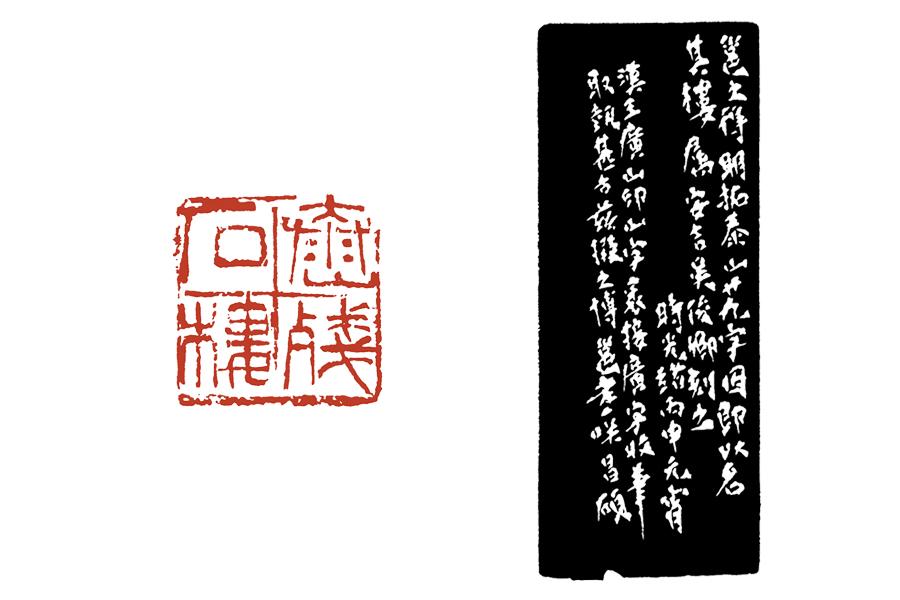 泰山殘
石樓
邕之得明拓泰山廿九字因即以名
其樓屬安吉吳俊卿刻之
時光緒丙申元宵
漢王廣山印山字篆接廣字收筆
取埶甚古茲擬之博邕老一咲昌碩